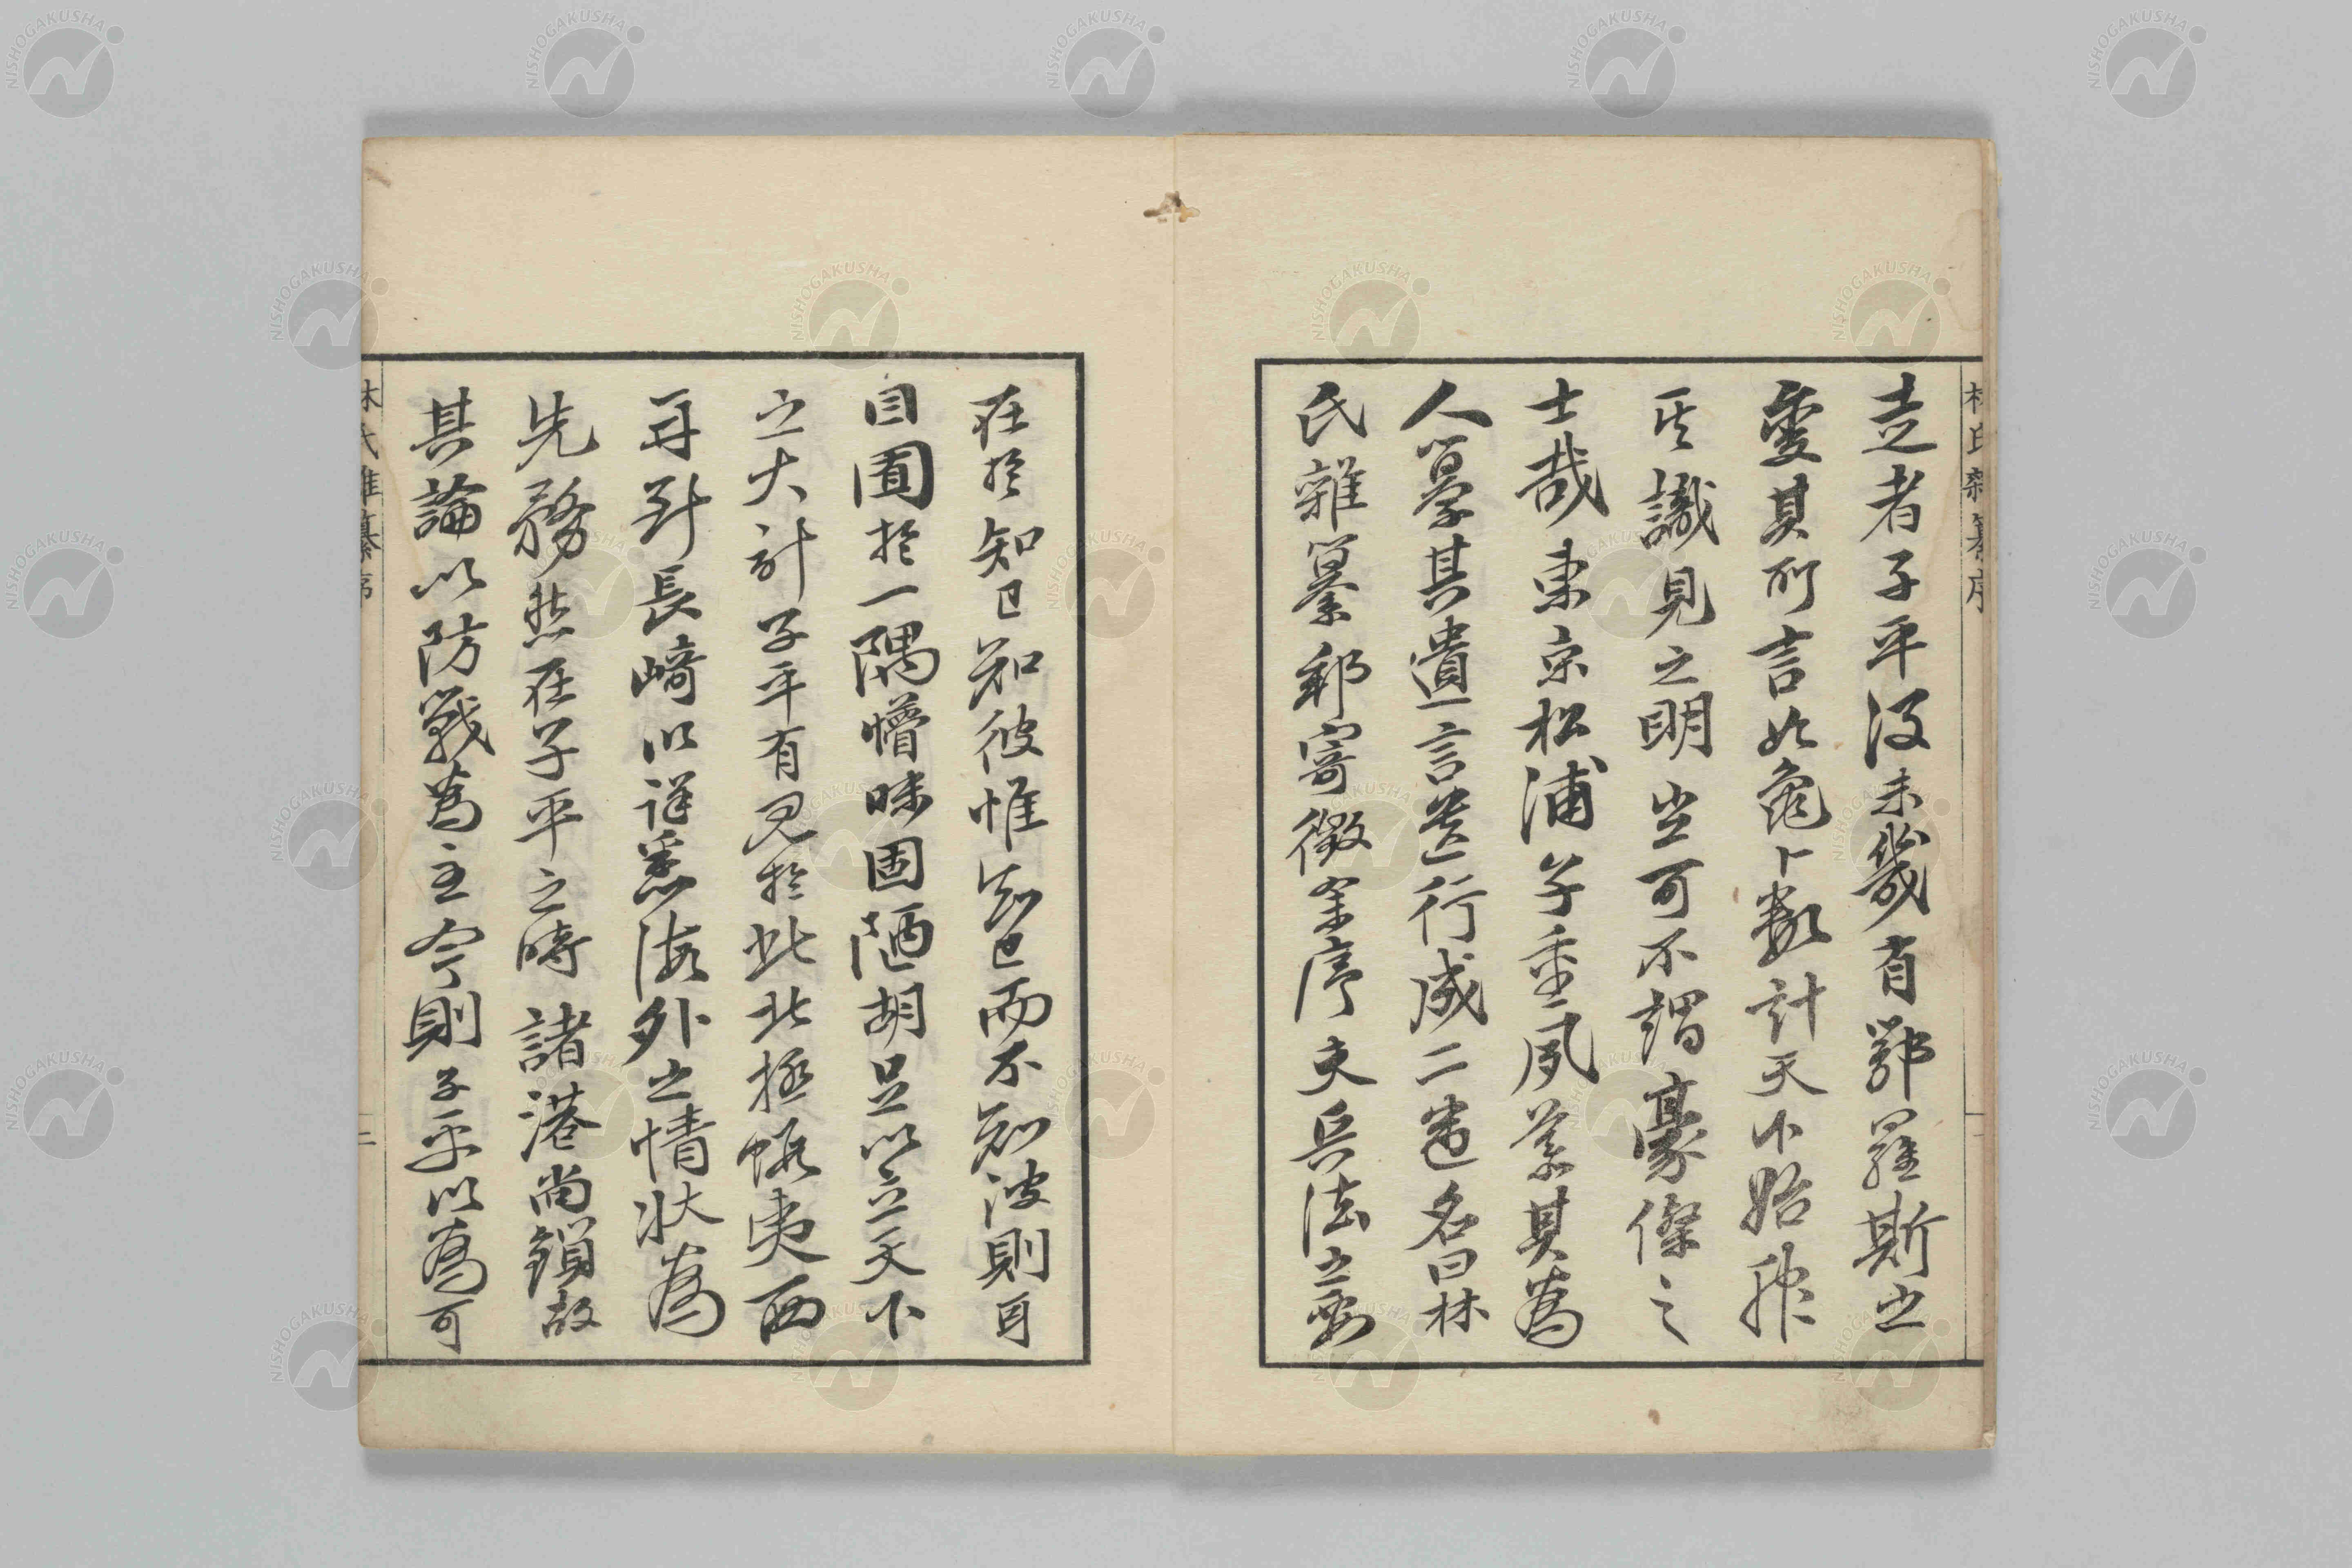 林氏雜纂序
走者子平没未幾有鄂羅斯之
變其所言如龜卜数計天下始服
其識見之明豈可不謂豪傑之
士哉東京松浦子重夙慕其為
人纂其遺言遺行成二巻名曰林
氏雜纂郵寄徴余序夫兵法之要
在於知己知彼惟知己而不知彼則耳
目囿於一隅懵昧固陋胡足以立天下
之大計子平有見於此北極蝦夷西
再到長崎以詳悉海外之情状為
先務然在子平之時諸港尚鎖故
其論以防戰為主今則子平以為可
林氏雜纂序 二
NISHOGAKUSHA